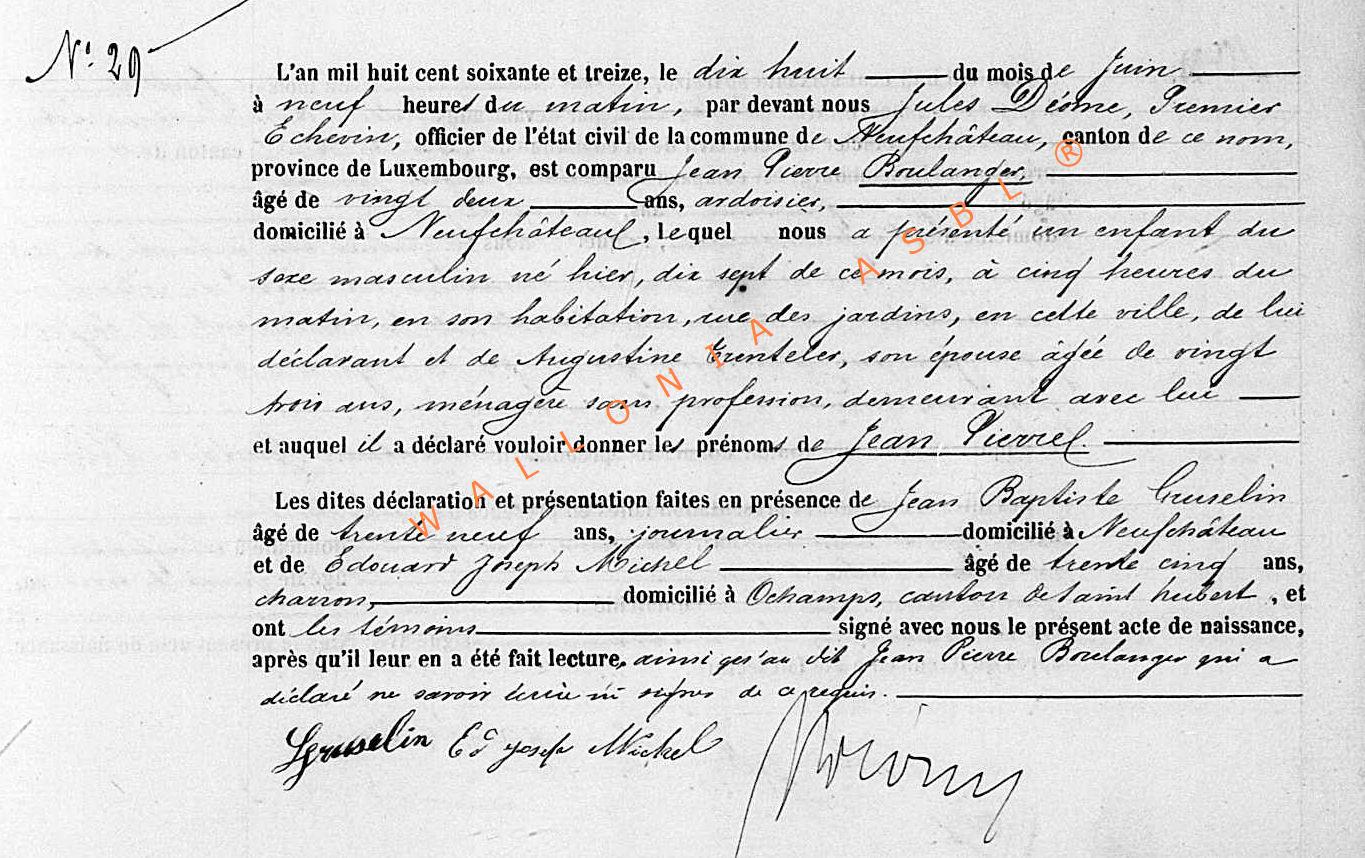 N° 29
L'an mil huit cent soixante et treize, le dix huit du mois de Juin
à neuf heures du matin, par devant nous Jules Déome, Premier
Echevin, officier de l'état civil de la commune de Neufchâteau, canton de ce nom,
province de Luxembourg, est comparu Jean Pierre Boulanger,
âgé de vingt deux ans, ardoisier,
domicilié à Neufchâteau, lequel nous a présenté un enfant du
sexe masculin né hier, dix sept de ce mois, à cinq heures du
matin, en son habitation, rue des jardins, en cette ville, de lui
déclarant et de Augustine, son épouse âgée de vingt
trois ans, ménagère sans profession, demeurant avec lui
et auquel il a déclaré vouloir donner les prénoms de Jean Pierre.
Les dites déclaration et présentation faites en présence de Jean Baptiste Gruselin
âgé de trente neuf ans, journalier domicilié à Neufchâteau
et de Edouard Joseph Michel âgé de trente cinq ans,
charron, domicilié à Ochamps, canton de Saint hubert, et
ont les témoins signé avec nous le présent acte de naissance,
après qu'il leur en a été fait lecture, ainsi qu'au dit Jean Pierre Boulanger qui a
déclaré ne savoir écrire ni signer de ce requis.
Gruselin Ed Joseph Michel
WALLONIA ASBL ®